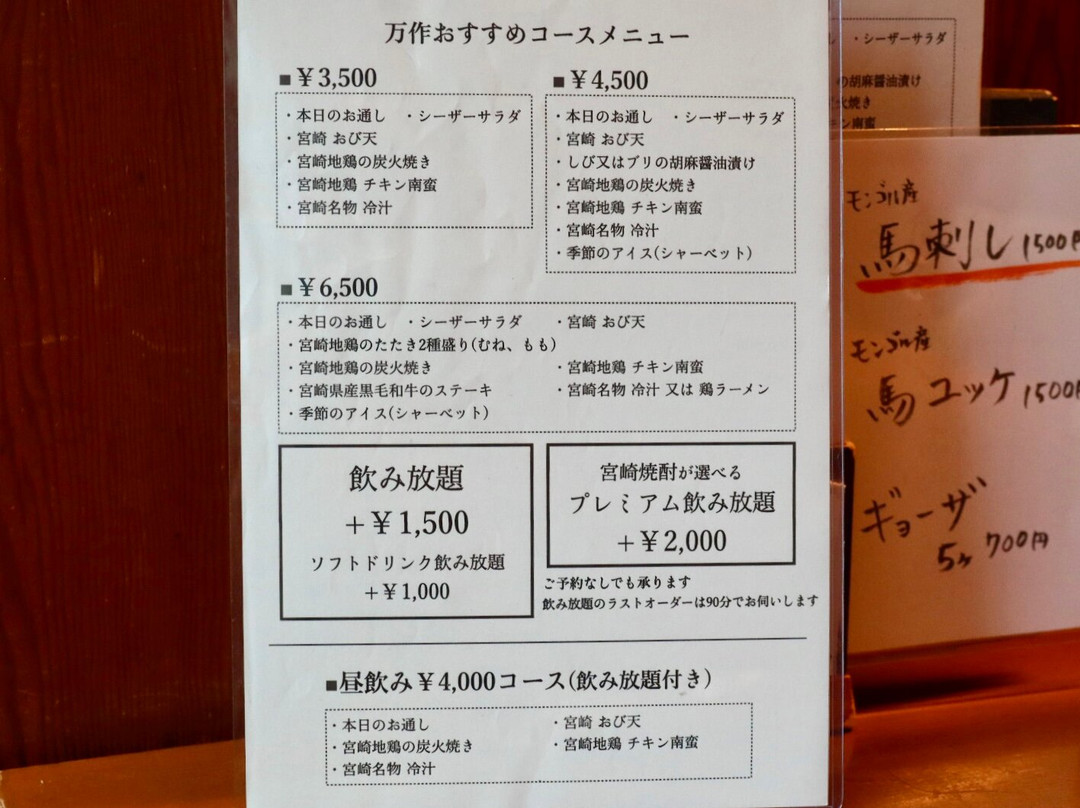 万作おすすめコースメニュー
■￥3,500
・本日のお通し ・シーザーサラダ
・宮崎 おび天
・宮崎地鶏の炭火焼き
・宮崎地鶏 チキン南蛮
・宮崎名物 冷汁
■￥4,500
・本日のお通し ・シーザーサラダ
・宮崎 おび天
・しび又はブリの胡麻醤油漬け
・宮崎地鶏の炭火焼き
・宮崎地鶏 チキン南蛮
・宮崎名物 冷汁
・季節のアイス(シャーベット)
■￥6,500
・本日のお通し ・シーザーサラダ ・宮崎 おび天
・宮崎地鶏のたたき2種盛り(むね、もも)
・宮崎地鶏の炭火焼き ・宮崎地鶏 チキン南蛮
・宮崎県産黒毛和牛のステーキ ・宮崎名物 冷汁 又は 鶏ラーメン
・季節のアイス(シャーベット)
飲み放題
+￥1,500
ソフトドリンク飲み放題
+￥1,000
宮崎焼酎が選べる
プレミアム飲み放題
+￥2,000
ご予約なしでも承ります
飲み放題のラストオーダーは90分でお伺いします
■昼飲み￥4,000コース(飲み放題付き)
・本日のお通し ・宮崎 おび天
・宮崎地鶏の炭火焼き ・宮崎地鶏 チキン南蛮
・宮崎名物 冷汁
・シーザーサラダ
の胡麻醤油漬け
火焼き
キン南蛮
モンゴル産
馬刺し 1500円
モンゴル産
馬ユッケ 1500円
ギョーザ
5ヶ 700円